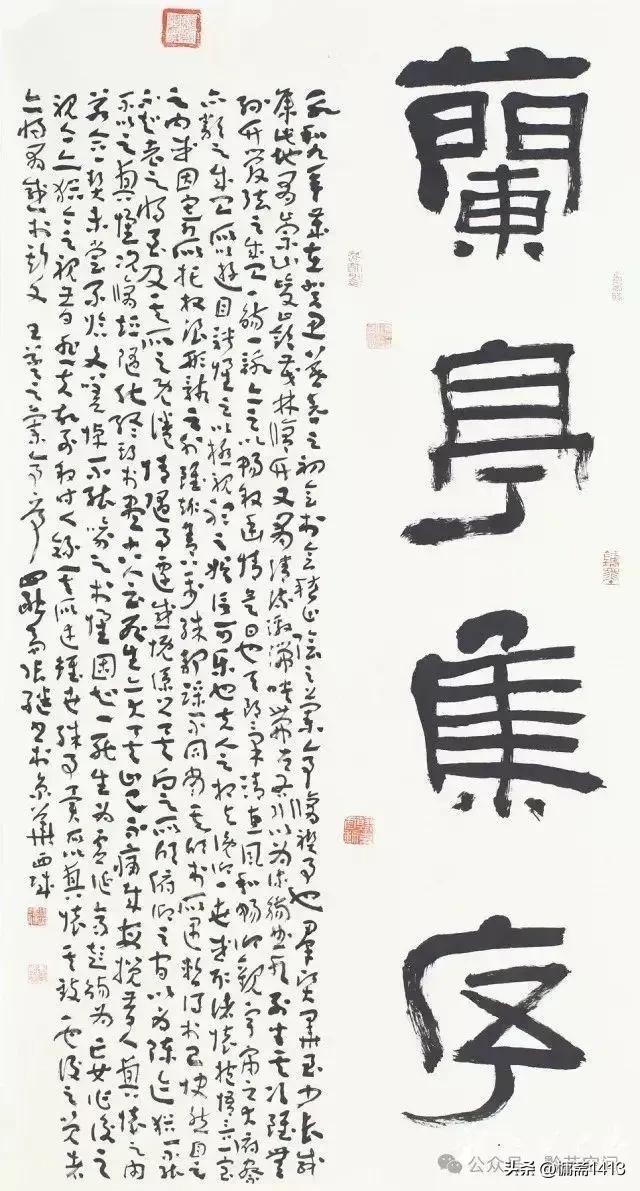 蘭亭集序
永和九年歲在癸丑暮春之初會於會稽山陰之蘭亭脩禊事也羣賢畢至少長咸
集此地有崇山峻領茂林脩竹又有清流激湍暎帶左右引以為流觴曲水列坐其次雖無
絲竹管弦之盛一觴一詠亦足以暢敘幽情是日也天朗氣清惠風和暢仰觀宇宙之大俯察
品類之盛所以遊目騁懷足以極視聽之娛信可樂也夫人之相與俯仰一世或取諸懷抱悟言一室
之內或因寄所託放浪形骸之外雖趣舍萬殊靜躁不同當其欣於所遇暫得於己快然自足
不知老之將至及其所之既惓情隨事遷感慨係之矣向之所欣俯仰之間以為陳迹猶不能
不以之興懷況脩短隨化終期於盡古人云死生亦大矣豈不痛哉每攬昔人興感之由
若合一契未嘗不臨文嗟悼不能喻之於懷固知一死生為虛誕齊彭殤為妄作後之
視今亦猶今之視昔悲夫故列敘時人錄其所述雖世殊事異所以興懷其致一也後之覽者
亦將有感於斯文 王羲之蘭亭序 張繼書於京華西城
公众号·黔艺空间
头条@懒斋1413